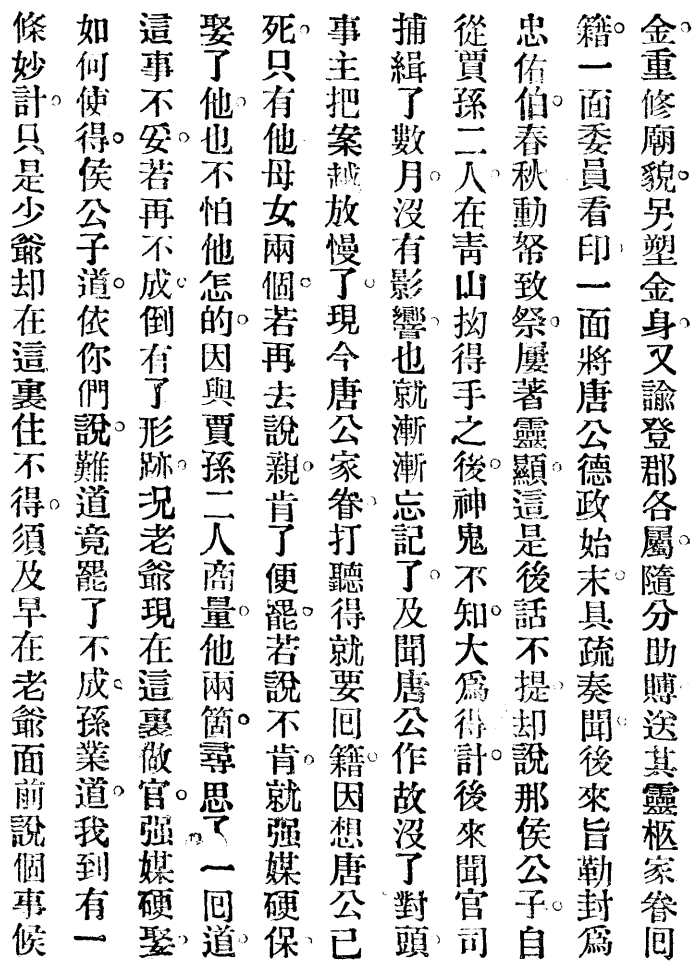 金重修廟貌。另塑金身。又諭登郡各屬。隨分助賻送其靈柩家眷囘
籍。一面委員看印、一面將唐公德政始末。具疏奏聞。後來旨勅封爲
忠佑伯。春秋動帑致祭。屢著靈顯。這是後話不提。却說那侯公子。自
從賈孫二人。在靑山拗得手之後。神鬼不知。大爲得計。後來聞官司
捕緝了數月。沒有影響。也就漸漸忘記了。及聞唐公作故沒了對頭、
事主把案越放慢了。現今唐公家眷、打聽得就要囘籍。因想唐公已
死。只有他母女兩個。若再去說親。肯了便罷。若說不肯、就强媒硬保、
娶了他。也不怕他怎的。因與賈孫二人商量。他兩箇。尋思了一囘道、
這事不妥。若再不成。倒有了形跡。况老爺現在這裏做官。强媒硬娶、
如何使得。侯公子道。依你們說。難道竟罷了不成。孫業道。我到有一
條妙計。只是少爺却在這裏住不得。須及早在老爺面前說個事候